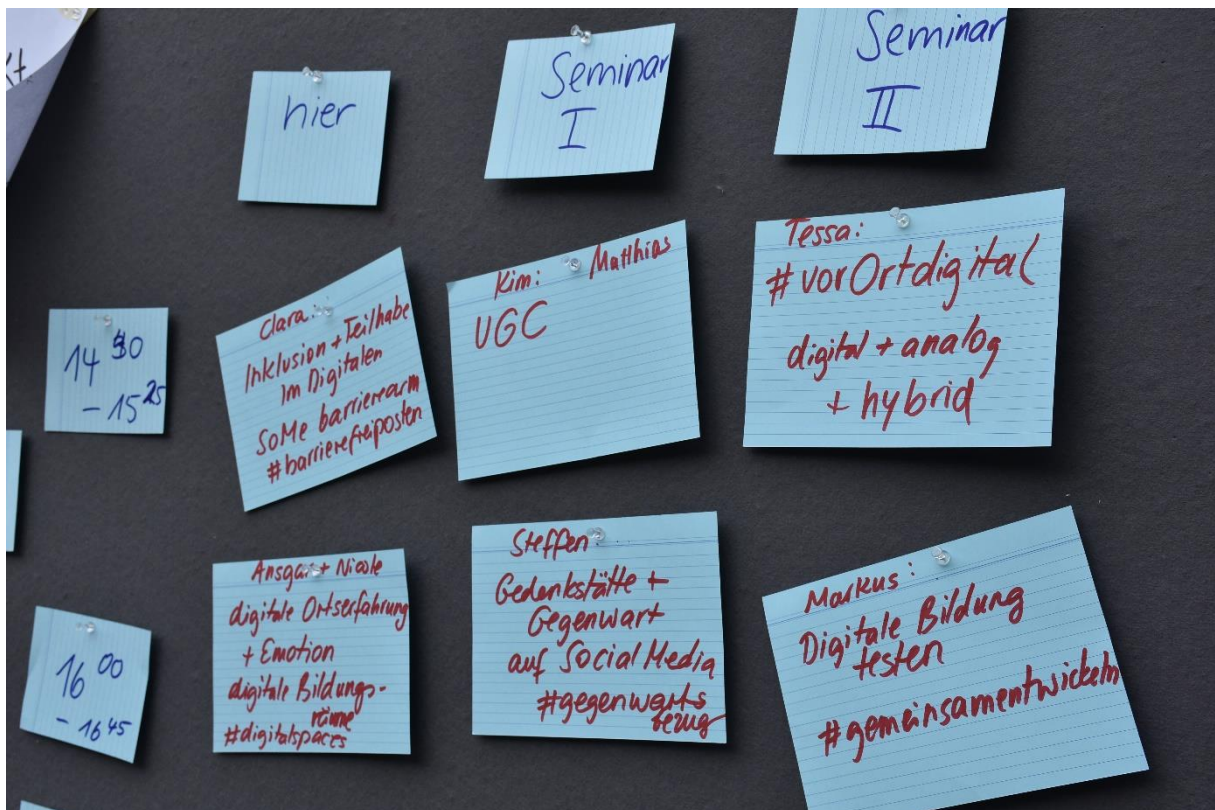 kt.
hier
Seminar
I
Seminar
II
14 30
- 15 25
Clara:
Inklusion + Teilhabe
im Digitalen
SoMe barrierearm
#barrierefreiposten
Kim: Matthias
UGC
Tessa:
#vorOrtdigital
digital + analog
+ hybrid
16 00
- 16 45
Ansgar + Nicole
digitale Ortserfahrung
+ Emotion
digitale Bildungs-
räume
#digitalspaces
Steffen:
Gedenkstätte +
Gegenwart
auf Social Media
#gegenwarts
bezug
Markus:
Digitale Bildung
testen
#gemeinsamentwickeln